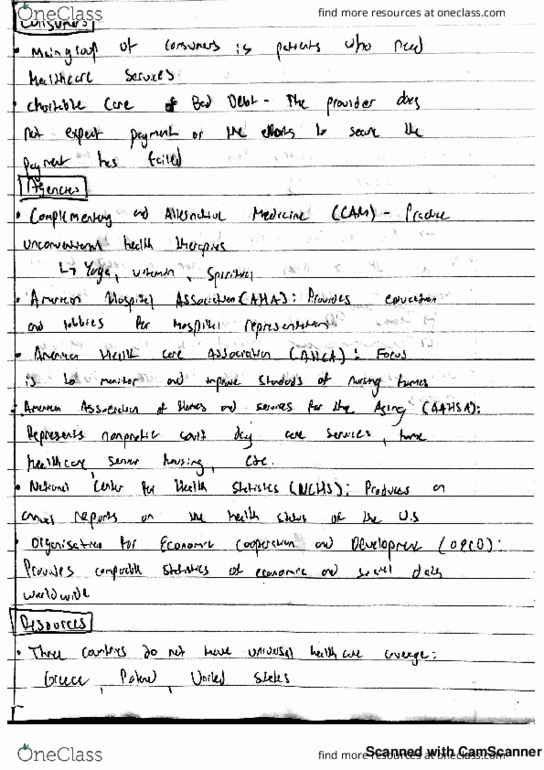 OneClass
find more resources at oneclass.com
Consumers
• Main group of consumers is patients who need
healthcare services
• Charitable Care & Bad Debt - The provider does
not expect payment or the efforts to secure the
payment has failed
Agencies
• Complementary and Alternative Medicine (CAM) - Practice
unconventional health therapies
↳ Yoga, vitamin, Spiritual
• American Hospital Association (AHA): Provides education
and lobbies for hospital representation
• American Health care Association (AHCA): Focus
is to monitor and improve standards of nursing homes
• American Association of Homes and services for the Aging (AAHSA):
Represents nonprofit adult day care services, home
healthcare, senior housing, etc.
• National Center for Health Statistics (NCHS): Produces an
annual reports on the health status of the U.S
• Organisation for Economic Cooperation and Development (OECD):
Provides comparable statistics of economic and social data
worldwide
Resources
• Three countries do not have universal healthcare coverage:
Greece, Poland, United States
OneClass
find more resources at oneclass.com
Scanned with CamScanner